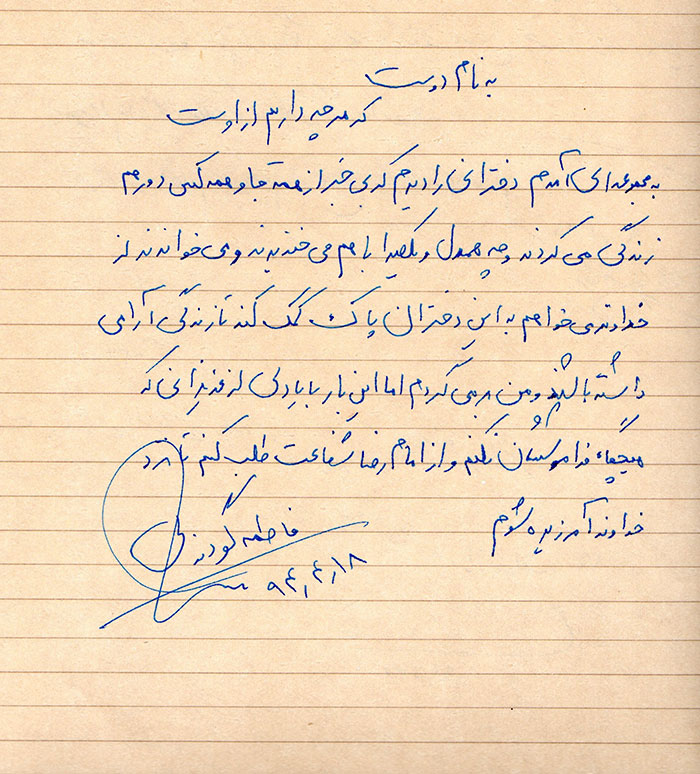 به نام دوست
که هر چه دارم از اوست
به مجموعه ای آمدم دخترانی را دیدم که بی خبر از همه جا و همه کس دور هم
زندگی می کردند و چه همدل و یکصدا با هم می خندیدند و می خواندند از
خداوند می خواهم به این دختران پاک کمک کند تا زندگی آرامی
داشته باشند و من بر می گردم اما این بار با یادی از عزیزانی که
هیچگاه فراموششان نکنم و از امام رضا شفاعت طلب کنم تا نزد
خداوند آمرزیده شوم
فاطمه گودرزی
۹۴,۴,۱۸